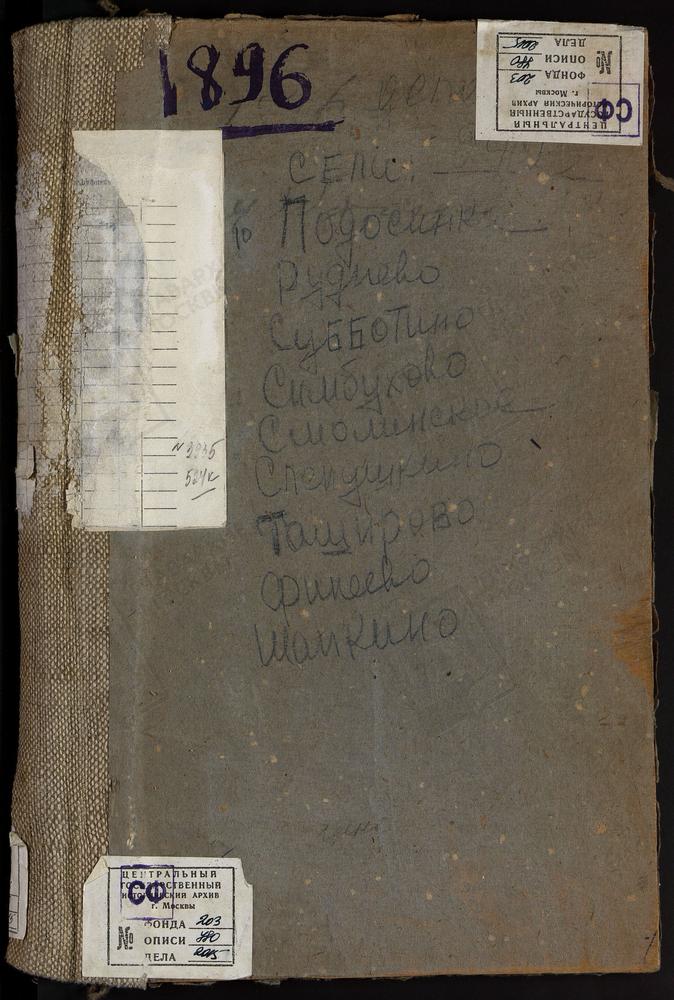 1896
ЦЕНТРАЛЬНЫЙ
ГОСУДАРСТВЕННЫЙ
ИСТОРИЧЕСКИЙ АРХИВ
г. Москвы
СФ
ФОНДА 203
№ ОПИСИ 780
ДЕЛА
СЕЛИ.
10 Подосинк
Руднево
Субботино
Симбухово
Смолинское
Слепушкино
Таширово
Финеево
Шапкино
ЦЕНТРАЛЬНЫЙ
ГОСУДАРСТВЕННЫЙ
ИСТОРИЧЕСКИЙ АРХИВ
г. Москвы
СФ
ФОНДА 203
№ ОПИСИ 780
ДЕЛА